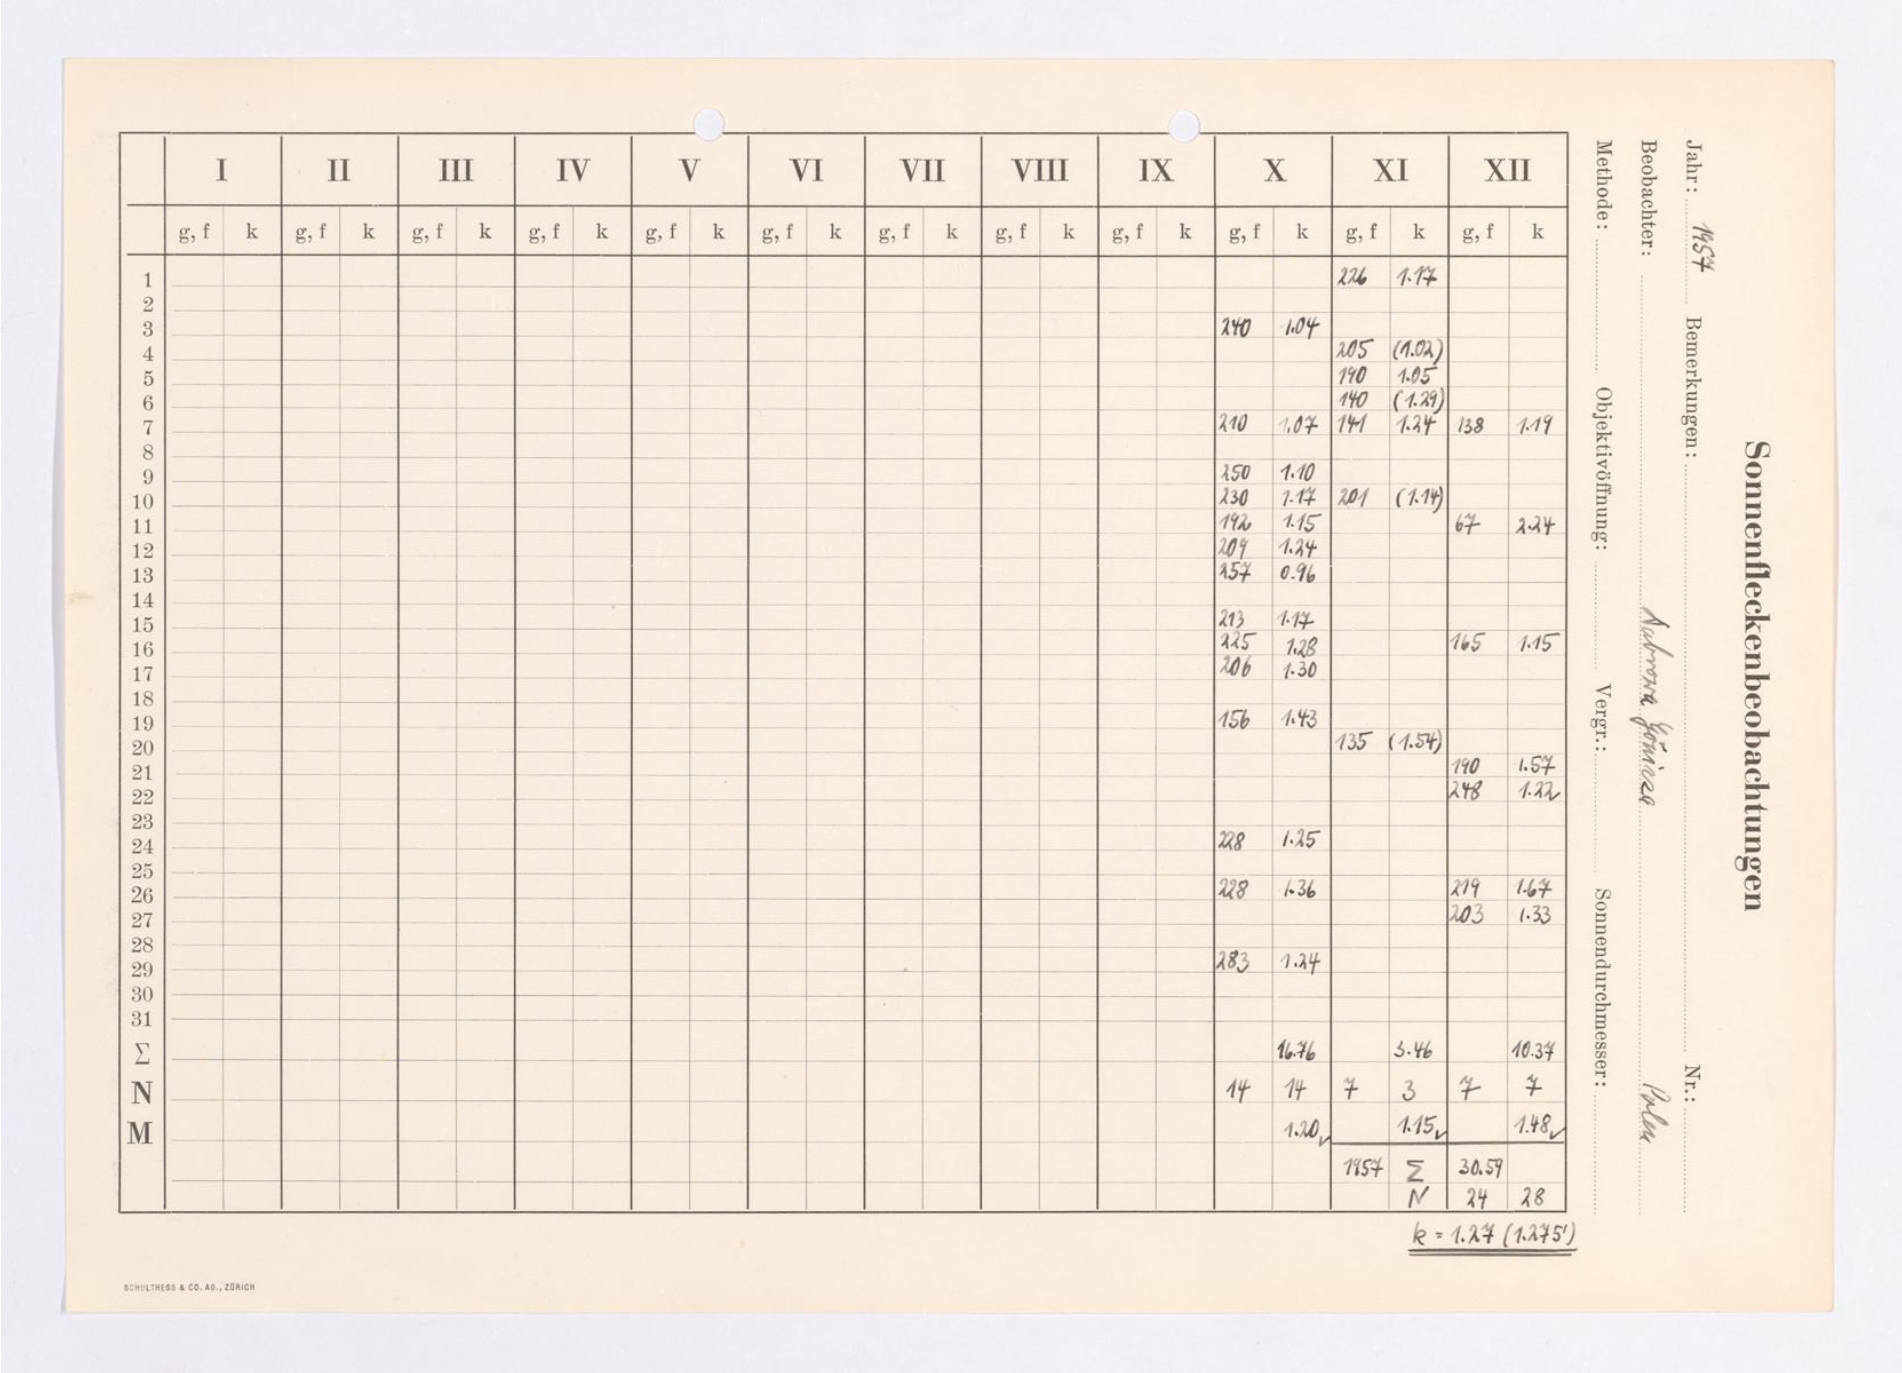 Sonnenfleckenbeobachtungen
Jahr: 1957 Bemerkungen: Nr.:
Beobachter: Dabrowa Górnicza Polen
Methode: Objektivöffnung: Vergr.: Sonnendurchmesser:
I II III IV V VI VII VIII IX X XI XII
g, f k g, f k g, f k g, f k g, f k g, f k g, f k g, f k g, f k g, f k g, f k g, f k
1 226 1.17
2
3 240 1.04
4 205 (1.02)
5 190 1.05
6 140 (1.29)
7 210 1.07 141 1.24 138 1.19
8
9 250 1.10
10 230 1.17 201 (1.14)
11 192 1.15 67 2.24
12 209 1.24
13 257 0.96
14
15 213 1.17
16 225 1.28 165 1.15
17 206 1.30
18
19 156 1.43
20 135 (1.54)
21 190 1.57
22 248 1.22
23
24 228 1.25
25
26 228 1.36 219 1.67
27 203 1.33
28
29 283 1.24
30
31
Σ 16.76 3.46 10.37
N 14 14 7 3 7 7
M 1.20 1.15 1.48
1957 Σ 30.59
N 24 28
k = 1.27 (1.275')
SCHULTHESS & CO. AG., ZÜRICH